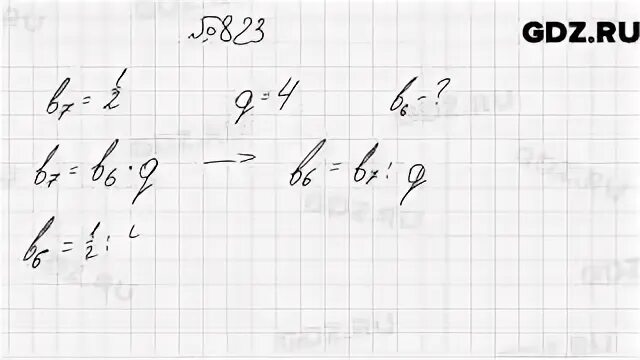 №823
GDZ.RU
b₇ = 1/2 q = 4 b₆ - ?
b₇ = b₆ · q → b₆ = b₇ : q
b₆ = 1/2 :